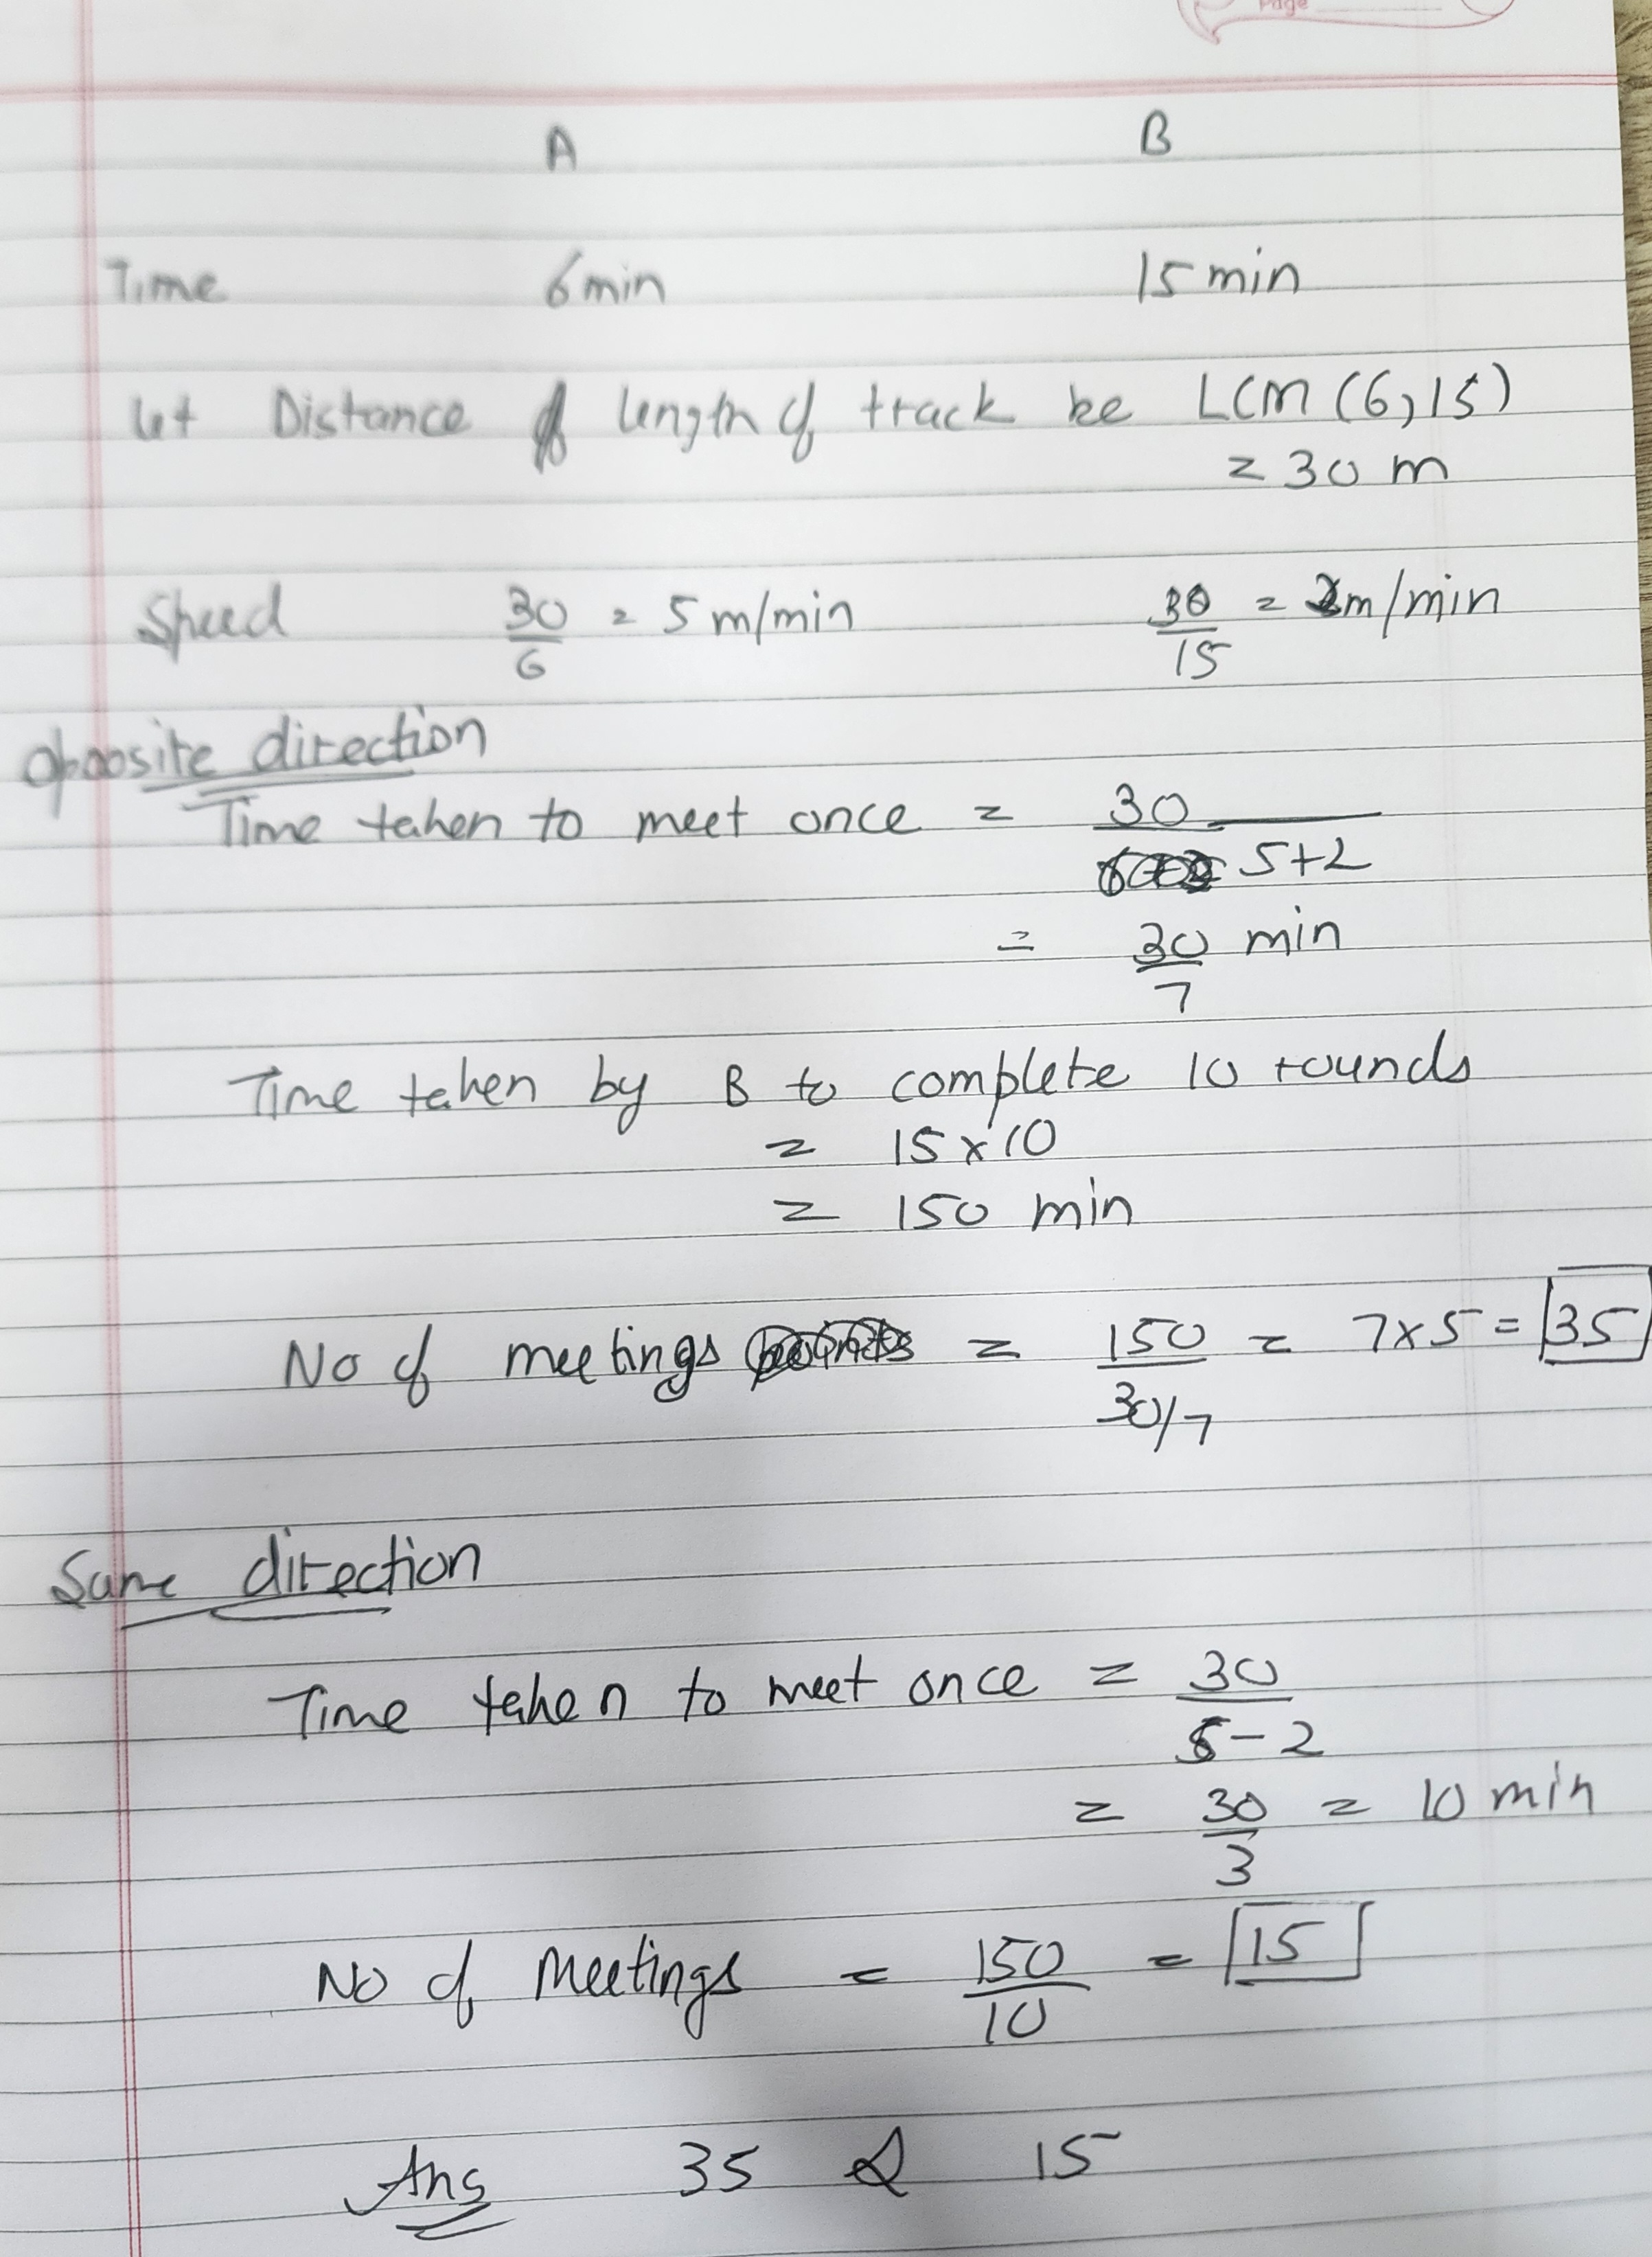 Page
A B
Time 6min 15 min
Let Distance of length of track be LCM (6,15)
= 30 m
Speed 30/6 = 5 m/min 30/15 = 2m/min
opposite direction
Time taken to meet once = 30/5+2
= 30/7 min
Time taken by B to complete 10 rounds
= 15 x 10
= 150 min
No of meetings = 150/30/7 = 7x5 = 35
Same direction
Time taken to meet once = 30/5-2
= 30/3 = 10 min
No of Meetings = 150/10 = 15
Ans 35 & 15